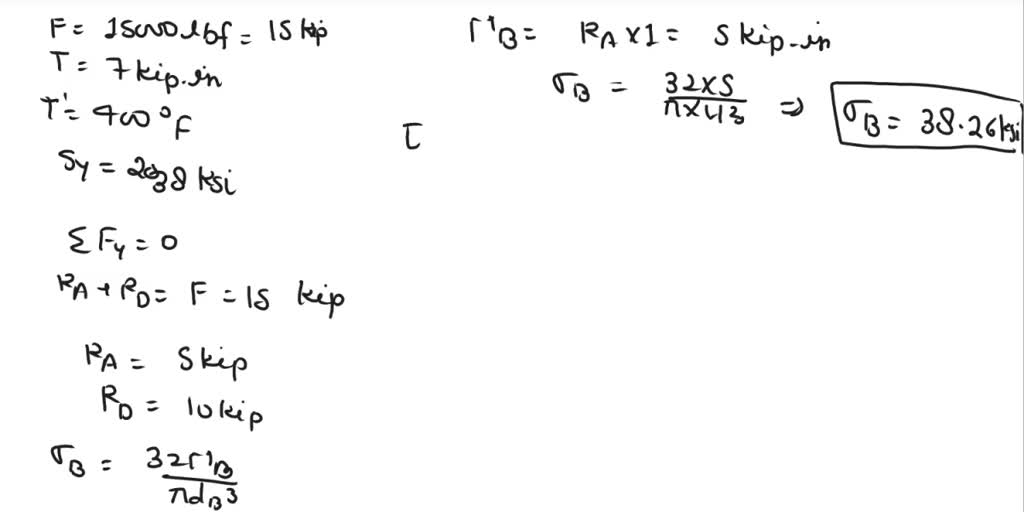 F = 15000 lbf = 15 kip
T = 7 kip-in
T' = 400 °F
Sy = 2038 ksi
ΣFy = 0
RA + RD = F = 15 kip
RA = 5 kip
RD = 10 kip
σB = 32MB / πdB3
MB = RA x 1 = 5 kip-in
σB = 32x5 / πx43 ⇒ σB = 38.26 ksi
τ